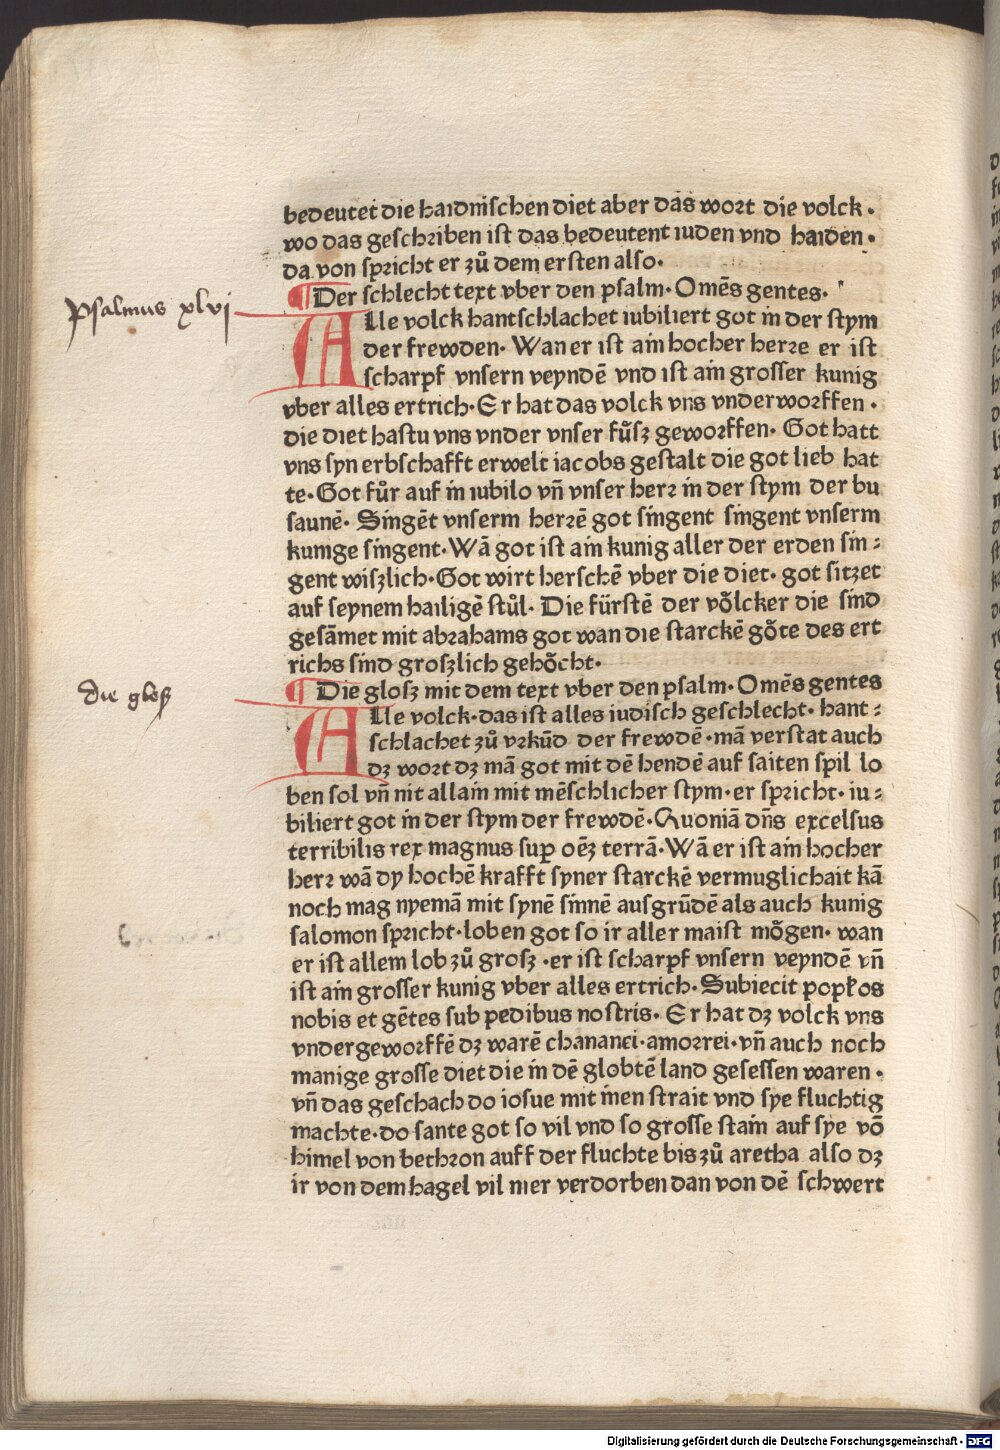 bedeutet die haidnischen diet aber das wort die volck·
wo das geschriben ist das bedeutent iuden vnd haiden·
da von spricht er zů dem ersten also·
¶ Der schlecht text vber den psalm· Omēs gentes·
Psalmus xlvi
Alle volck hantschlachet iubiliert got in der stym
der frewden· Wan er ist ain hocher herre er ist
scharpf vnsern veyndē vnd ist ain grosser kunig
vber alles ertrich· Er hat das volck vns vnderworffen·
die diet hastu vns vnder vnser fůsz geworffen· Got hatt
vns syn erbschafft erwelt iacobs gestalt die got lieb hat
te· Got fůr auf in iubilo vñ vnser herr in der stym der bu
saunē· Singēt vnserm herrē got singent singent vnserm
kunige singent· Wā got ist ain kunig aller der erden sin⸗
gent wiszlich· Got wirt herschē vber die diet· got sitzet
auf seynem hailigē stůl· Die fürstē der võlcker die sind
gesāmet mit abrahams got wan die starckē gõte des ert
richs sind groszlich gehõcht·
die glosz
¶ Die glosz mit dem text vber den psalm· Omēs gentes
Alle volck· das ist alles iudisch geschlecht· hant⸗
schlachet zů vrkūd der frewdē· mā verstat auch
dz wort dz mā got mit dē hendē auf saiten spil lo
ben sol vñ nit allain mit mēschlicher stym· er spricht· iu⸗
biliert got in der stym der frewdē· Quoniā dñs excelsus
terribilis rex magnus sup oēz terrā· Wā er ist ain hocher
herr wā dy hochē krafft syner starckē vermuglichait kā
noch mag nyemā mit synē sinnē ausgrūdē als auch kunig
salomon spricht· loben got so ir aller maist mõgen· wan
er ist allem lob zů grosz· er ist scharpf vnsern veyndē vñ
ist ain grosser kunig vber alles ertrich· Subiecit popłos
nobis et gētes sub pedibus nostris· Er hat dz volck vns
vndergeworffē dz warē chananei· amorrei· vñ auch noch
manige grosse diet die in dē globtē land gesessen waren·
vñ das geschach do iosue mit inen strait vnd sye fluchtig
machte· do sante got so vil vnd so grosse stain auf sye võ
himel von bethron auff der fluchte bis zů aretha also dz
ir von dem hagel vil mer verdorben dan von dē schwert
Digitalisierung gefördert durch die Deutsche Forschungsgemeinschaft - DFG